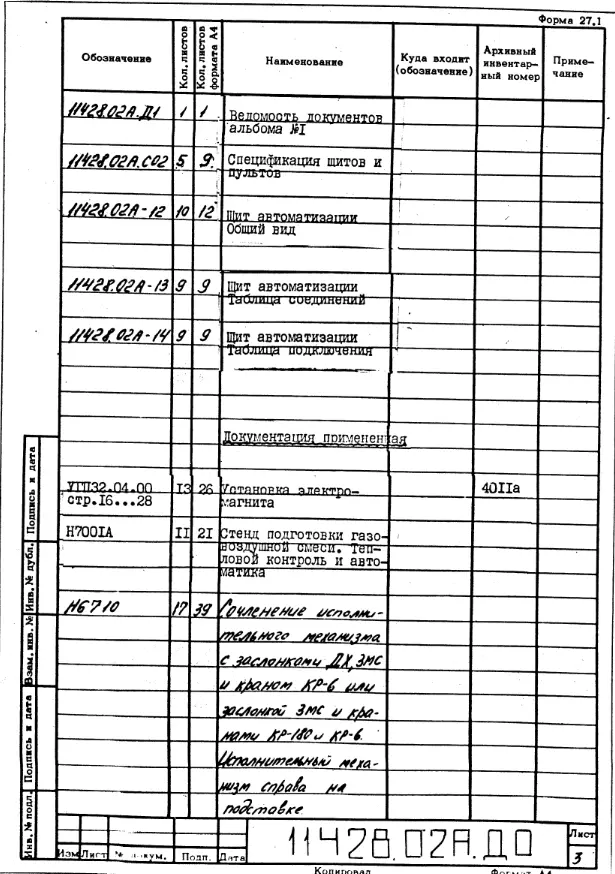 Форма 27.1
Обозначение
Кол. листов
Кол. листов формата А4
Наименование
Куда входит (обозначение)
Архивный инвентар-
ный номер
Приме-
чание
11428.02А.Д1 1 1 Ведомость документов
альбома №I
11428.02А.СО2 5 9 Спецификация щитов и
пультов
11428.02А-12 10 12 Щит автоматизации
Общий вид
11428.02А-13 9 9 Щит автоматизации
Таблица соединений
11428.02А-14 9 9 Щит автоматизации
Таблица подключения
Документация примененная
УГП32.04.00 I3 26 Установка электро- 40IIа
стр.I6...28 магнита
Н700IА II 2I Стенд подготовки газо-
воздушной смеси. Теп-
ловой контроль и авто-
матика
Н6710 17 39 Сочленение исполни-
тельного механизма
с заслонками ДХ, ЗМС
и краном КР-6 или
заслонкой ЗМС и кра-
нами КР-180 и КР-6.
Исполнительный меха-
низм справа на
подставке
Подпись и дата
Инв. № дубл.
Взам. инв. №
Подпись и дата
Инв. № подл.
Изм Лист № докум. Подп. Дата
11428.02А.ДО
Лист
3
Копировал Формат А4